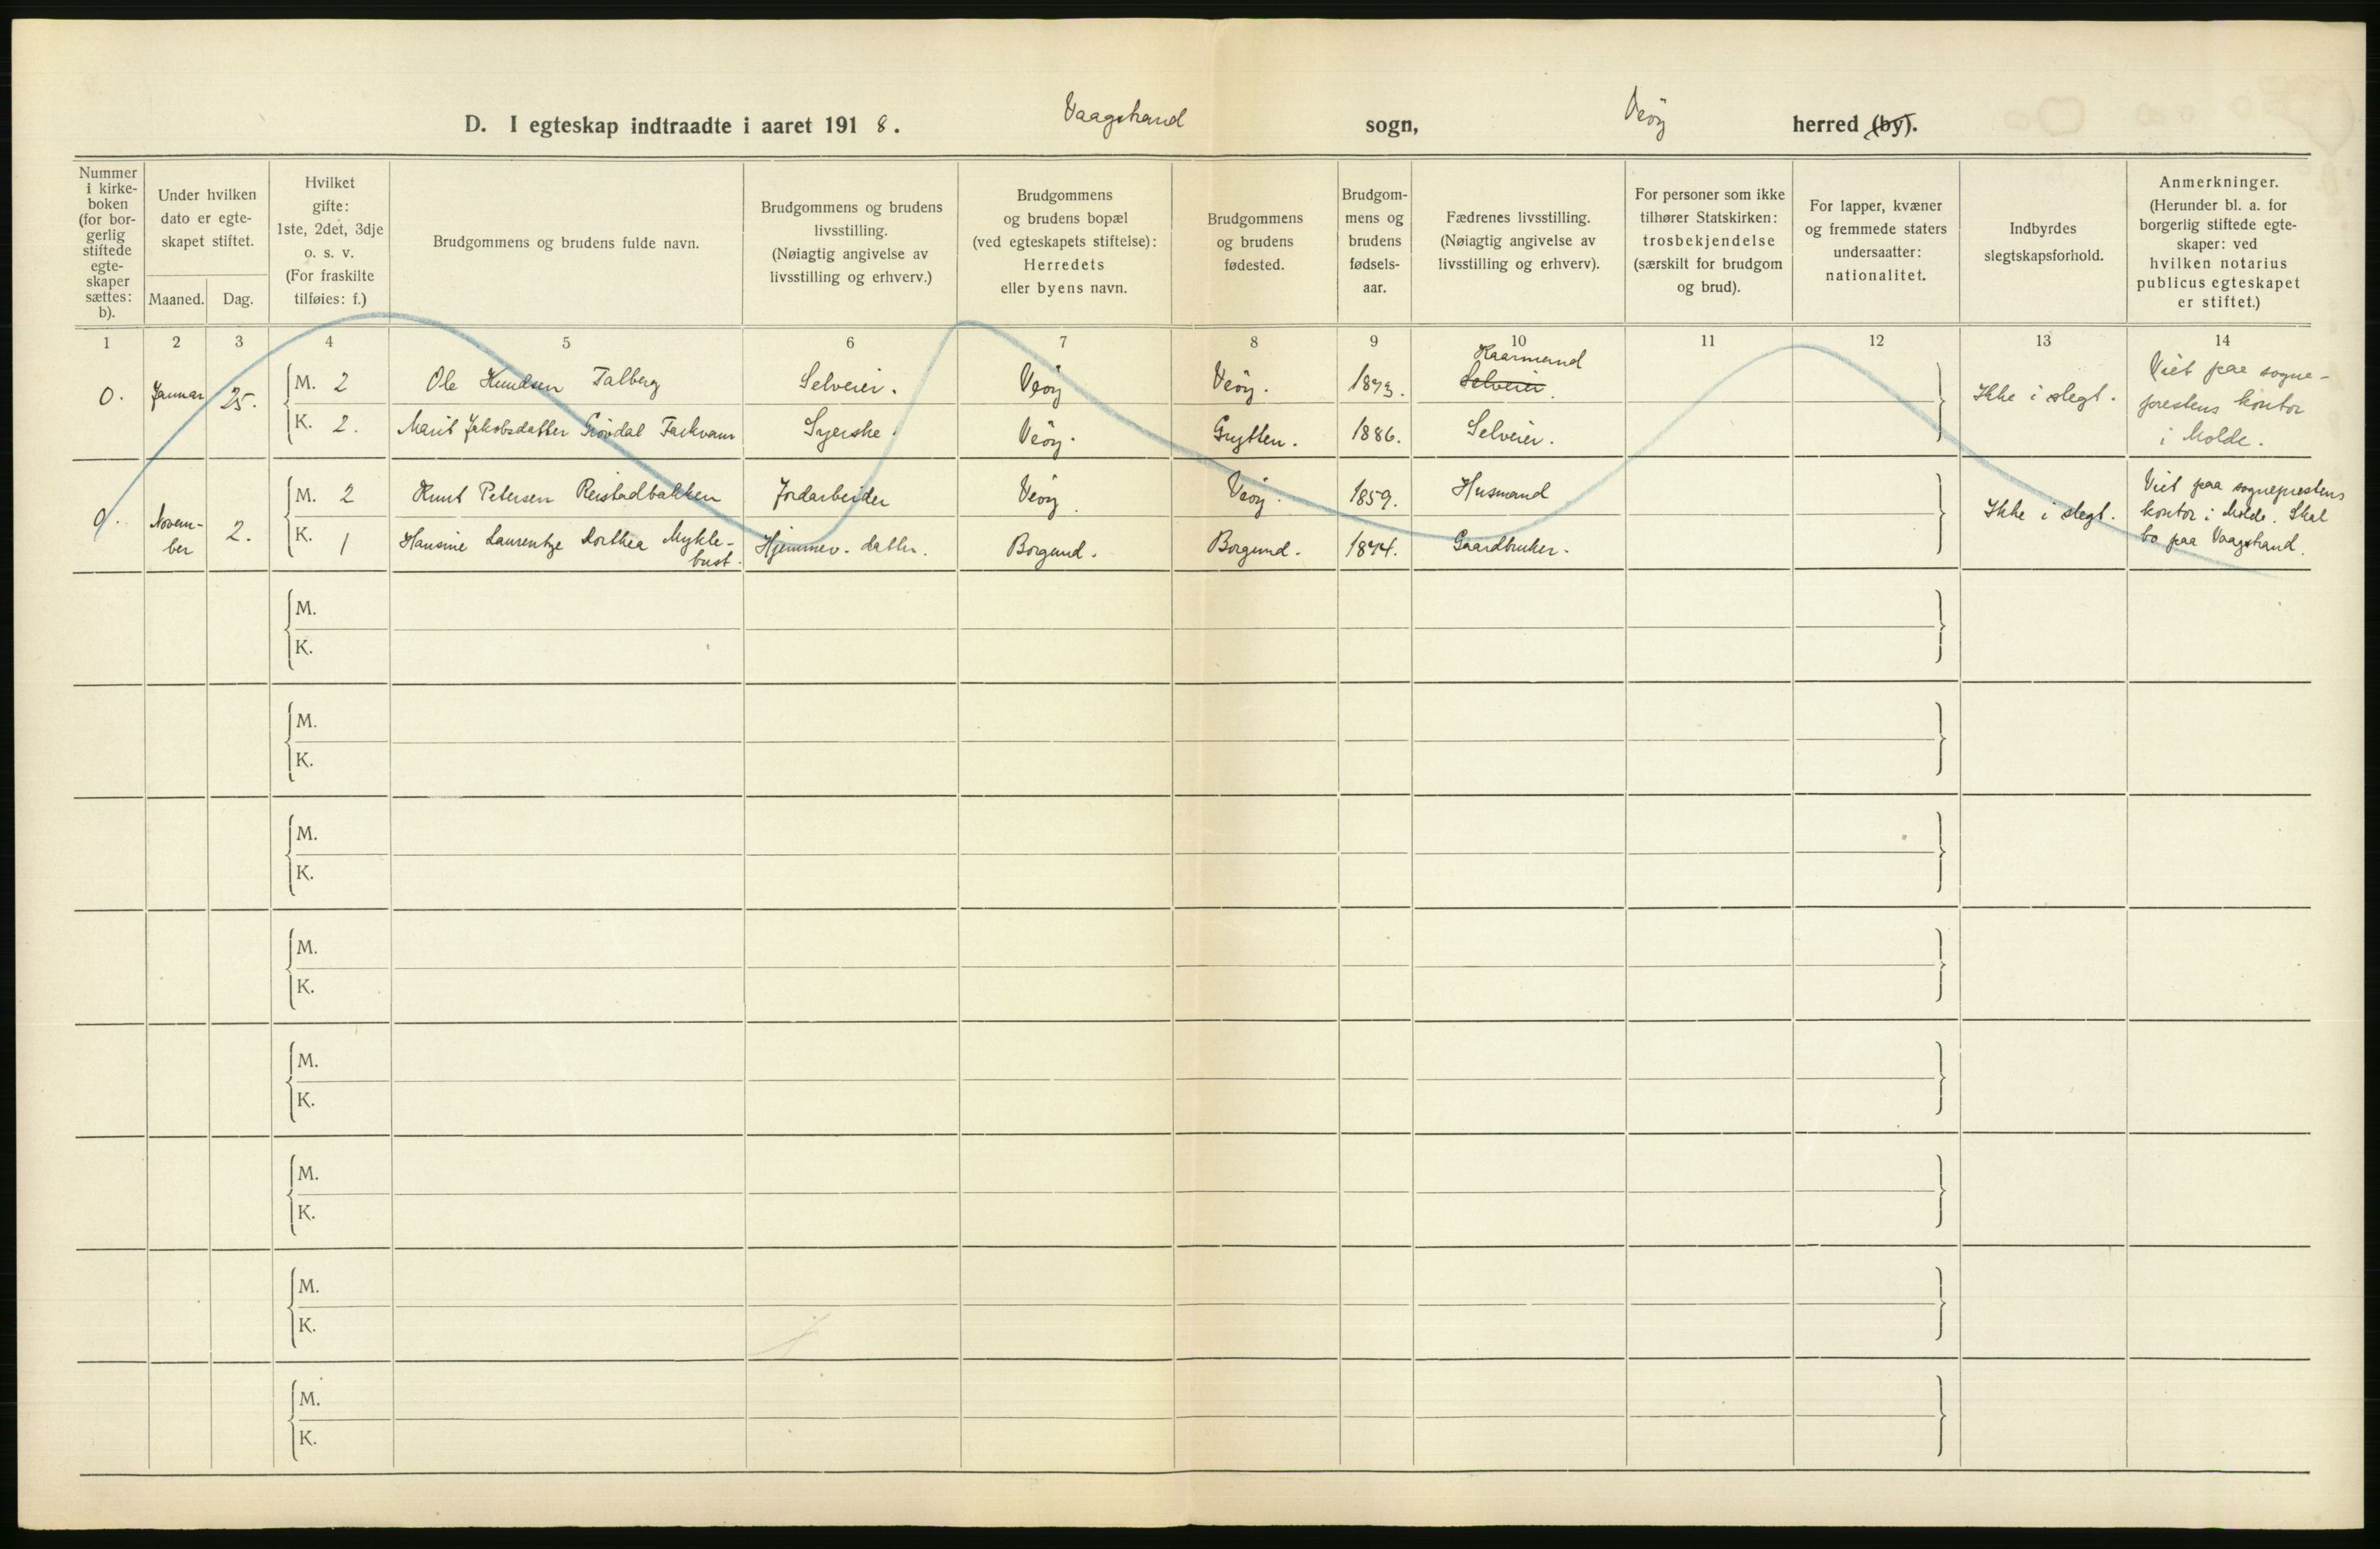 D. I egteskap indtraadte i aaret 1918. Vaagstrand sogn, Veöy herred (by).
Nummer i kirkeboken (for borgerlig stiftede egteskaper sættes: b).
Under hvilken dato er egteskapet stiftet.
Maaned. Dag.
Hvilket gifte: 1ste, 2det, 3dje o. s. v. (For fraskilte tilføies: f.)
Brudgommens og brudens fulde navn.
Brudgommens og brudens livsstilling. (Nøiagtig angivelse av livsstilling og erhverv.)
Brudgommens og brudens bopæl (ved egteskapets stiftelse): Herredets eller byens navn.
Brudgommens og brudens fødested.
Brudgommens og brudens fødselsaar.
Fædrenes livsstilling. (Nøiagtig angivelse av livsstilling og erhverv).
For personer som ikke tilhører Statskirken: trosbekjendelse (særskilt for brudgom og brud).
For lapper, kvæner og fremmede staters undersaatter: nationalitet.
Indbyrdes slegtskapsforhold.
Anmerkninger. (Herunder bl. a. for borgerlig stiftede egteskaper: ved hvilken notarius publicus egteskapet er stiftet.)
1 2 3 4 5 6 7 8 9 10 11 12 13 14
0. Januar 25. M. 2 Ole Knudsen Talberg Selveier. Veöy Veöy. 1873. Kaarmand Selveier. Ikke i slegt. Viet paa sogneprestens kontor i Molde.
K. 2. Marit Jakobsdatter Grövdal Syerske. Veöy. Grytten. 1886. Selveier.
0. November 2. M. 2 Knut Petersen Reistadbakken Jordarbeider Veöy. Veöy. 1859. Husmand Ikke i slegt. Viet paa sogneprestens kontor i Molde. Skal bo paa Vaagstrand.
K. 1 Hansine Laurentze Dorthea Myklebust. Hjemmev. datter. Borgund. Borgund. 1874. Gaardbruker.
M.
K.
M.
K.
M.
K.
M.
K.
M.
K.
M.
K.
M.
K.
M.
K.